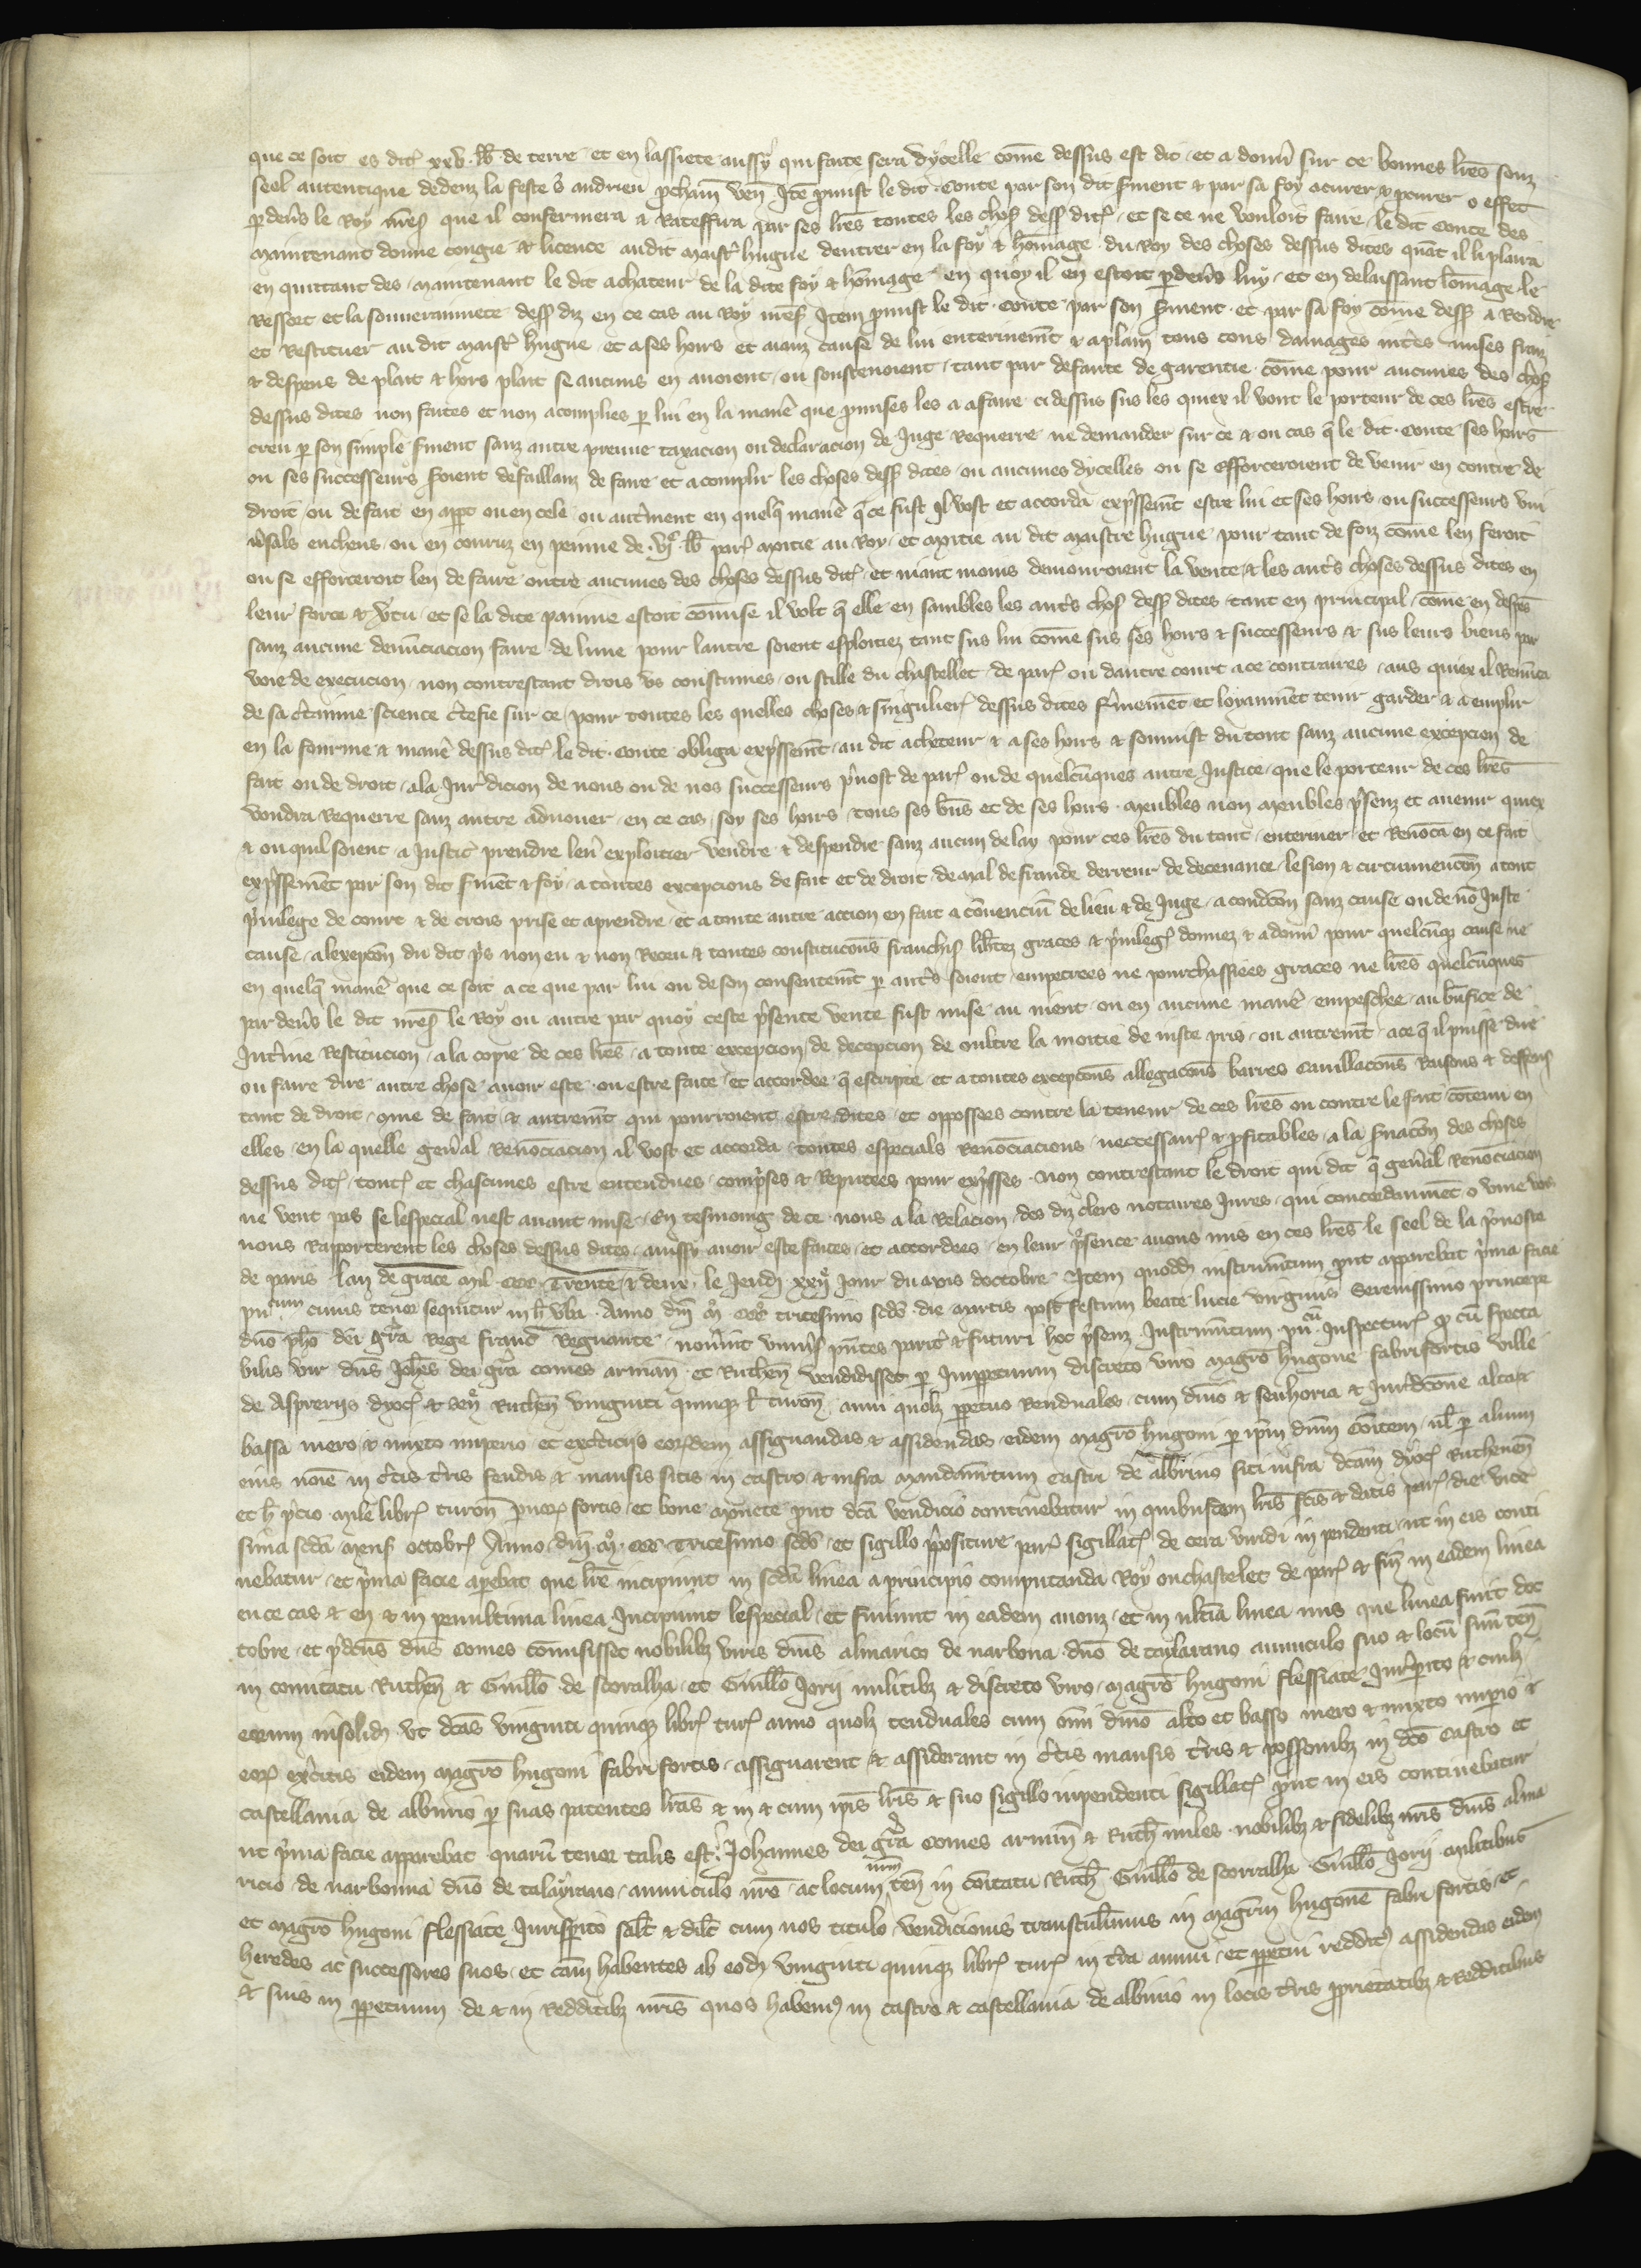 que ce soit es dit̾ xxv. lb̃ de terre et en lassiete aussy qui faite sera dycelle cõme dessus est dit et a doñ sur ce bonnes lr̃es souz
seel autentique dedenz la feste s̾ andrieu p̱chain veñ Itẽ p̱mist le dit Conte par son dit s̾ment & par sa foy acurer & pourer o effet
p̱ deũs le Roy nr̃es que il confermera & Rateffira par ses lr̃es toutes les chos̾ dess̾ dit̾ et se ce ne vouloit faire le dit Conte des
maintenant donne congie & licence audit maistr̾ hugue dentrer en la foy & hõmage du Roy des choses dessus dites quãt il li plaira
en quittant des maintenant le dit achateur de la dite foy & hõmage en quoy il en estoit p̱deũs luy et en delaissant lõmage le
Ressort et la souverainnete dess̾ diz en ce cas au Roy nr̃es̾ Item p̱mist le dit Conte par son s̾ment et par sa foy cõme dess̾ a Rendre
et Restituer au dit maistr̾ hugue et a ses hoirs et aianz cause de lui enterinem̃t & aplain tous cous damages int̾es mises fraiz
& despens de plait & hors plait se aucuns en avoient ou soustenoient tant par defaute de garentie cõme pour aucunes des chos̾
dessus dites non faites et non acomplies p̱ lui en la manẽ que p̱mises les a afaire ci dessus sus les quiex il vout le porteur de ces lr̃es estre
creu p̱ son simple s̾ment sanz autre preuue taxacion ou declaracion de Juge Requerre ne demander sur ce & ou cas q̃ le dit Conte ses hoirs
ou ses successeurs soient defaillanz de faire et acomplir les choses dess̾ dites ou aucunes dycelles ou se efforceroient de venir en contre de
droit ou de fait en app̱t ou en cele ou aut̾ment en quelq̃ manẽ q̃ ce fust Il vost et accorda exp̾ssem̃t estre lui et ses hoirs ou successeurs vni
v̾sals encheus ou en couruz en peinne de vj̾ lb̃ par̾ moitie au Roy et moitie au dit maistre hugue pour tant de foiz cõme len feroit
ou se efforceroit len de faire outre aucunes des choses dessus dit̾ et niant moins demouroient la vente & les aut̾s choses dessus dites en
leur force & v̾tu et se la dite painne estoit cõmise il volt q̃ elle en sambles les aut̾s chos̾ dess̾ dites tant en principal cõme en despẽs
sanz aucune denũciacion faire de lune pour lautre soient esploitiez tant sus lui cõme sus ses hoirs & successeurs & sus leurs biens par
voie de execucion non contrestant drois vs coustumes ou stille du chastellet de par̾ ou dautre court a ce contraires aus quiex il Renũca
de sa c̾tainne science c̾tefie sur ce pour toutes les quelles choses & singulier̾ dessus dites f̾mem̃t et loyaumẽt tenir garder & a emplir
en la fourme & manẽ dessus dit̾ le dit Conte obliga exp̾ssem̃t au dit acheteur & a ses hoirs & soumist du tout sanz aucune excepcion de
fait ou de droit ala Jur̾dicion de nous ou de nos successeurs p̾uost de par̾ ou de quelcũques autre Justice que le porteur de ces lr̃es
vondra Requerre sanz autre aduouer en ce cas soy ses hoirs tous ses bñs et de ses hoirs meubles non meubles p̾senz et auenir quiex
& ou quil soient a Justic̾ prendre leu̾ exploitier vendre & despendre sanz aucun delay pour ces lr̃es du tout enteriner et Renõca en ce fait
exp̾ssemẽt par son dit s̾mẽt & foy a toutes excepcions de fait et de droit de mal de fraude derreur de decevance lesion & circumuencõn a tout
p̾uilege de court & de crois prise et aprendre et a toute autre accion en fait a cõuenciũ de lieu & de Juge a condicõn sanz cause ou de nõ Juste
cause alexepcõn du dit p̾s non eu & non Receu & toutes constitucõns franchis̾ lib̾tez graces & p̾uileg̾ donnez & adoñ pour quelcũq̃ cause ne
en quelq̃ manẽ que ce soit a ce que par lui ou de son consentem̃t p̱ aut̾s soient empetrees ne pourchassiees graces ne lr̃es quelcũques
par deũs le dit nr̃es̾ le Roy ou autre par quoy ceste p̾sente vente fust mise au nient ou en aucune manẽ empeschee au bñfice de
Int̾ine Restitucion a la copie de ces lr̃es a toute excepcion de decepcion de oultre la moitie de iuste pris ou autrem̃t ace q̃ il puisse dire
ou faire dire autre chose auoir este ou estre faite et accordee q̃ escripte et a toutes excepcõns allegacõns barres cauillacõns Raisons & deffens̾
tant de droit cõme de fait & autrem̃t qui pourroient estre dites et opposees contre la teneur de ces lr̃es ou contre le fait cõtenu en
elles en la quelle geñal Renõciacion il vost et accorda toutes especials Renõciacions neccessair̾ & p̱fitables a la f̾macõn des choses
dessus dit̾ tout̾ et chascunes estre entendues comp̾ses & Reputees pour exp̾sses Non contrestant le droit qui dit q̃ geñal Renõciacion
ne vent pas se lespecial nest auant mise En tesmoing de ce nous a la Relacion des diz clers notaires Jures qui concordaumẽt o vne vois
nous Rapporterent les choses dessus dites aussy auoir este faites et accordees en leur p̾sence auons mis en ces lr̃es le seel de la p̾uoste
de paris lan de grace mil ccc Trente & deux le Jeudi xxij Jour du mois doctobre Item quodd̃ instrum̃tum p̱ut apparebat p̾ma facie
pu^cum cuius tenor sequitur in h̃ v̾ba Anno dñi m̊ ccc̊ tricesimo scđo die martis post festum beate lucie virginis Serenissimo principe
dño ph̃o dei gr̃a Rege franc̃ Regnante nou̾int vniu̾si p̃ntes parit̾ & futuri hoc p̾senz Instrum̃tum pu^cũ Inspectur̾ q̱ cũ specta
bilis vir dñs Joh̃es dei gr̃a comes arman̾ et Ruthẽn vendidisset p̱ Imp̱petuum discreto viro magr̃o hugone fabrifortis ville
de Asprerijs dyoc̾ & seny̾ Ruthẽn viginti quinq̃ l̾ turoñ anni quolz̃ p̱petuo Renduales cum dñio & senhoria & Jur̾dicõne alta &
bassa mero & mixto imperio et exc̾icijs eor̾dem assignandas & assidendas eidem magr̃o hugoni p̱ ip̃m dñm Cõitem ul̾ p̱ alium
eius noĩe in c̾tis t̾ris feudis & mansis sitis in castro & infra mandam̃tum castri de albinio siti infra dc̃am dyoc̾ Ruthenẽn
et h̃ p̾cio mile libr̾ turoñ p̱uor̾ fortis et bone monete p̱ut dc̃a vendicio continebatur in quibusdam lr̃is fc̃is & datis par̾ die vice
sima scđa mens̾ octobr̾ Anno dñi m̊ ccc̊ Tricesimo scđo et sigillo p̾positure par̾ sigillat̾ de cera viridi in pendenti ut in eis conti
nebatur et p̾ma facie ap̱ebat que lr̃e incipiunt in scđa linea a principio computanda Roy ou chastelet de par̾ & fiñ in eadem linea
en ce cas & en & in penultima linea Incipiunt lespecial et finiunt in eadem auonz et in ult̃ia linea mis que linea finit doc
tobre et p̾dc̃us dñs Comes cõmisisset nobilibz viris dñis almarico de narbona dño de taylarano auunculo suo & locũ suũ teñ
in comitatu Ruthẽn & Guill̃o de scoralha et Guill̃o Jorij militibz & discreto viro magr̃o hugoni flessiate Jur̾perito & cuilz̃
eorum insolid̃ vt dc̃as viginti quinq̃ libr̾ tur̾ anno quolz̃ renduales cum om̃i dñio alto et basso mero & mixto imp̱io &
eor̾ exc̾itis eidem magr̃o hugoni fabri fortis assignarent & assiderant in c̾tis mansis t̾ris & possessionibz in dc̃o Castro et
castellania de albinio p̱ suas patentes lr̃as & in & cum ip̃is lr̃is & suo sigillo inpendenti sigillat̾ p̱ut in eis continebatur
ut p̾ma facie apparebat quarũ tenor talis est. Johannes dei gr̃a Comes armañ & Ruth̃ miles nobilibz & fidelibz nr̃is dñis alma
rico de narbonna dño de talayrano auunculo nr̃o ac locum nr̃m teñ in Cõitatu Ruth̃ Guill̃o de scorralha Guill̃o Jorij militibus
et magr̃o hugoni flessiate Jurisp̱ito salt̃ & dilc̃ cum nos titulo vendicionis transtul̾imus in magr̃m hugonẽ fabri fortis et
heredes ac successores suos et cam̃ habentes ab eod̃ viginti quinq̃ libr̾ tur̾ in t̾ra annui et p̱petui reddit̾ assidendas eidem
& suis in p̱petuum de & in Redditibz nr̃is quos habem̾ in castro & castellania de albinio in locis t̾ris p̱prietatibz & Redditibus